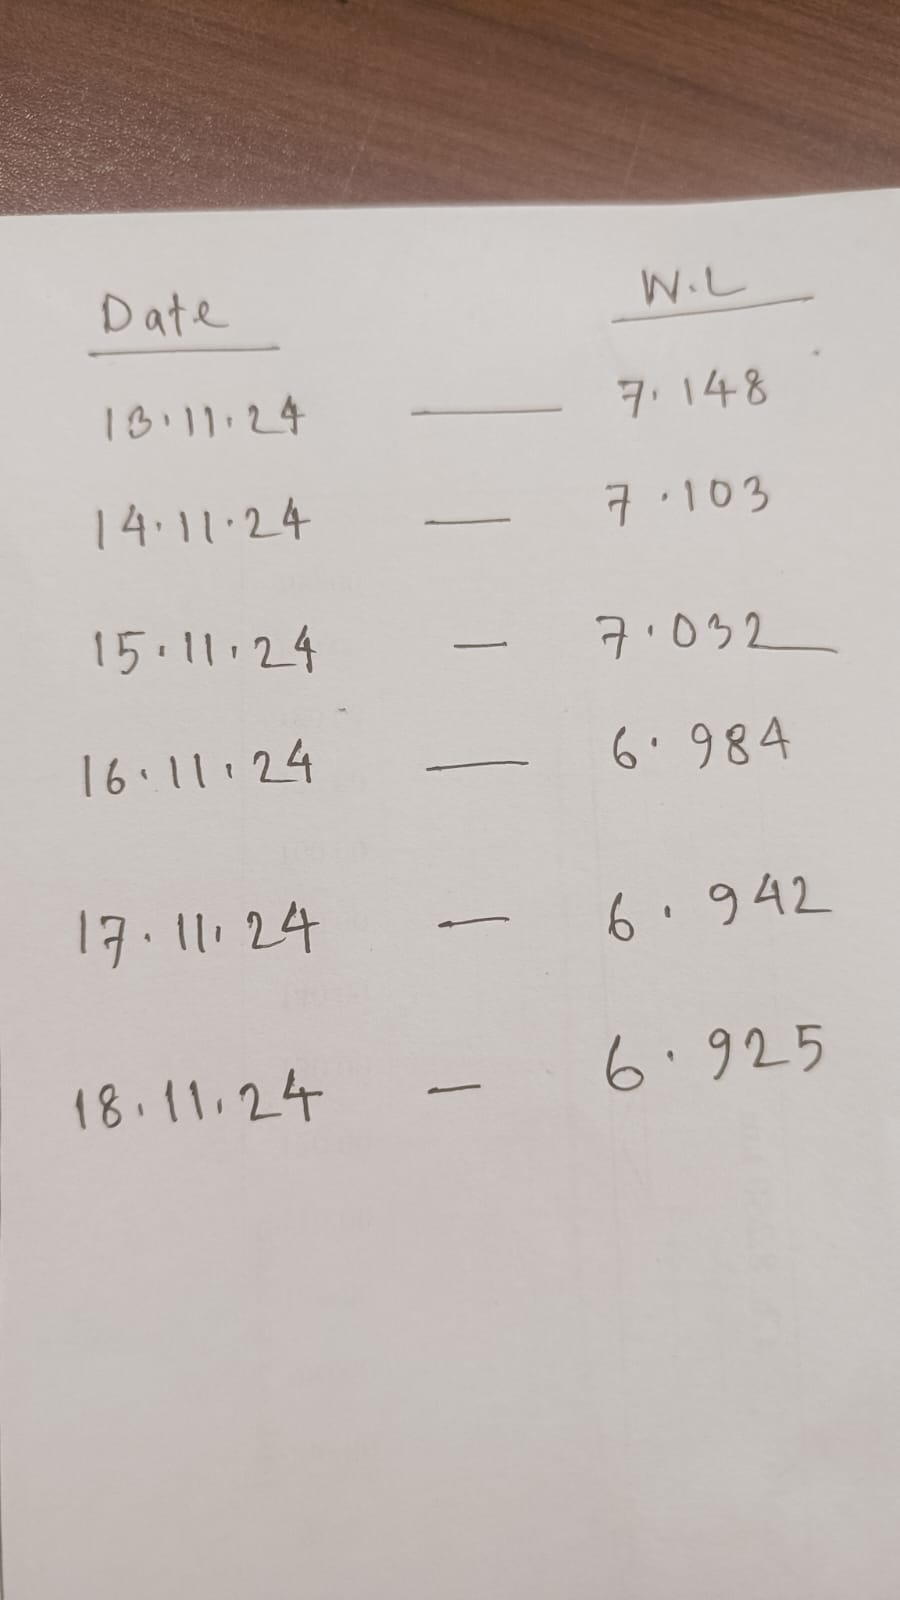 Date W.L
13.11.24 — 7.148
14.11.24 — 7.103
15.11.24 — 7.032
16.11.24 — 6.984
17.11.24 — 6.942
18.11.24 — 6.925